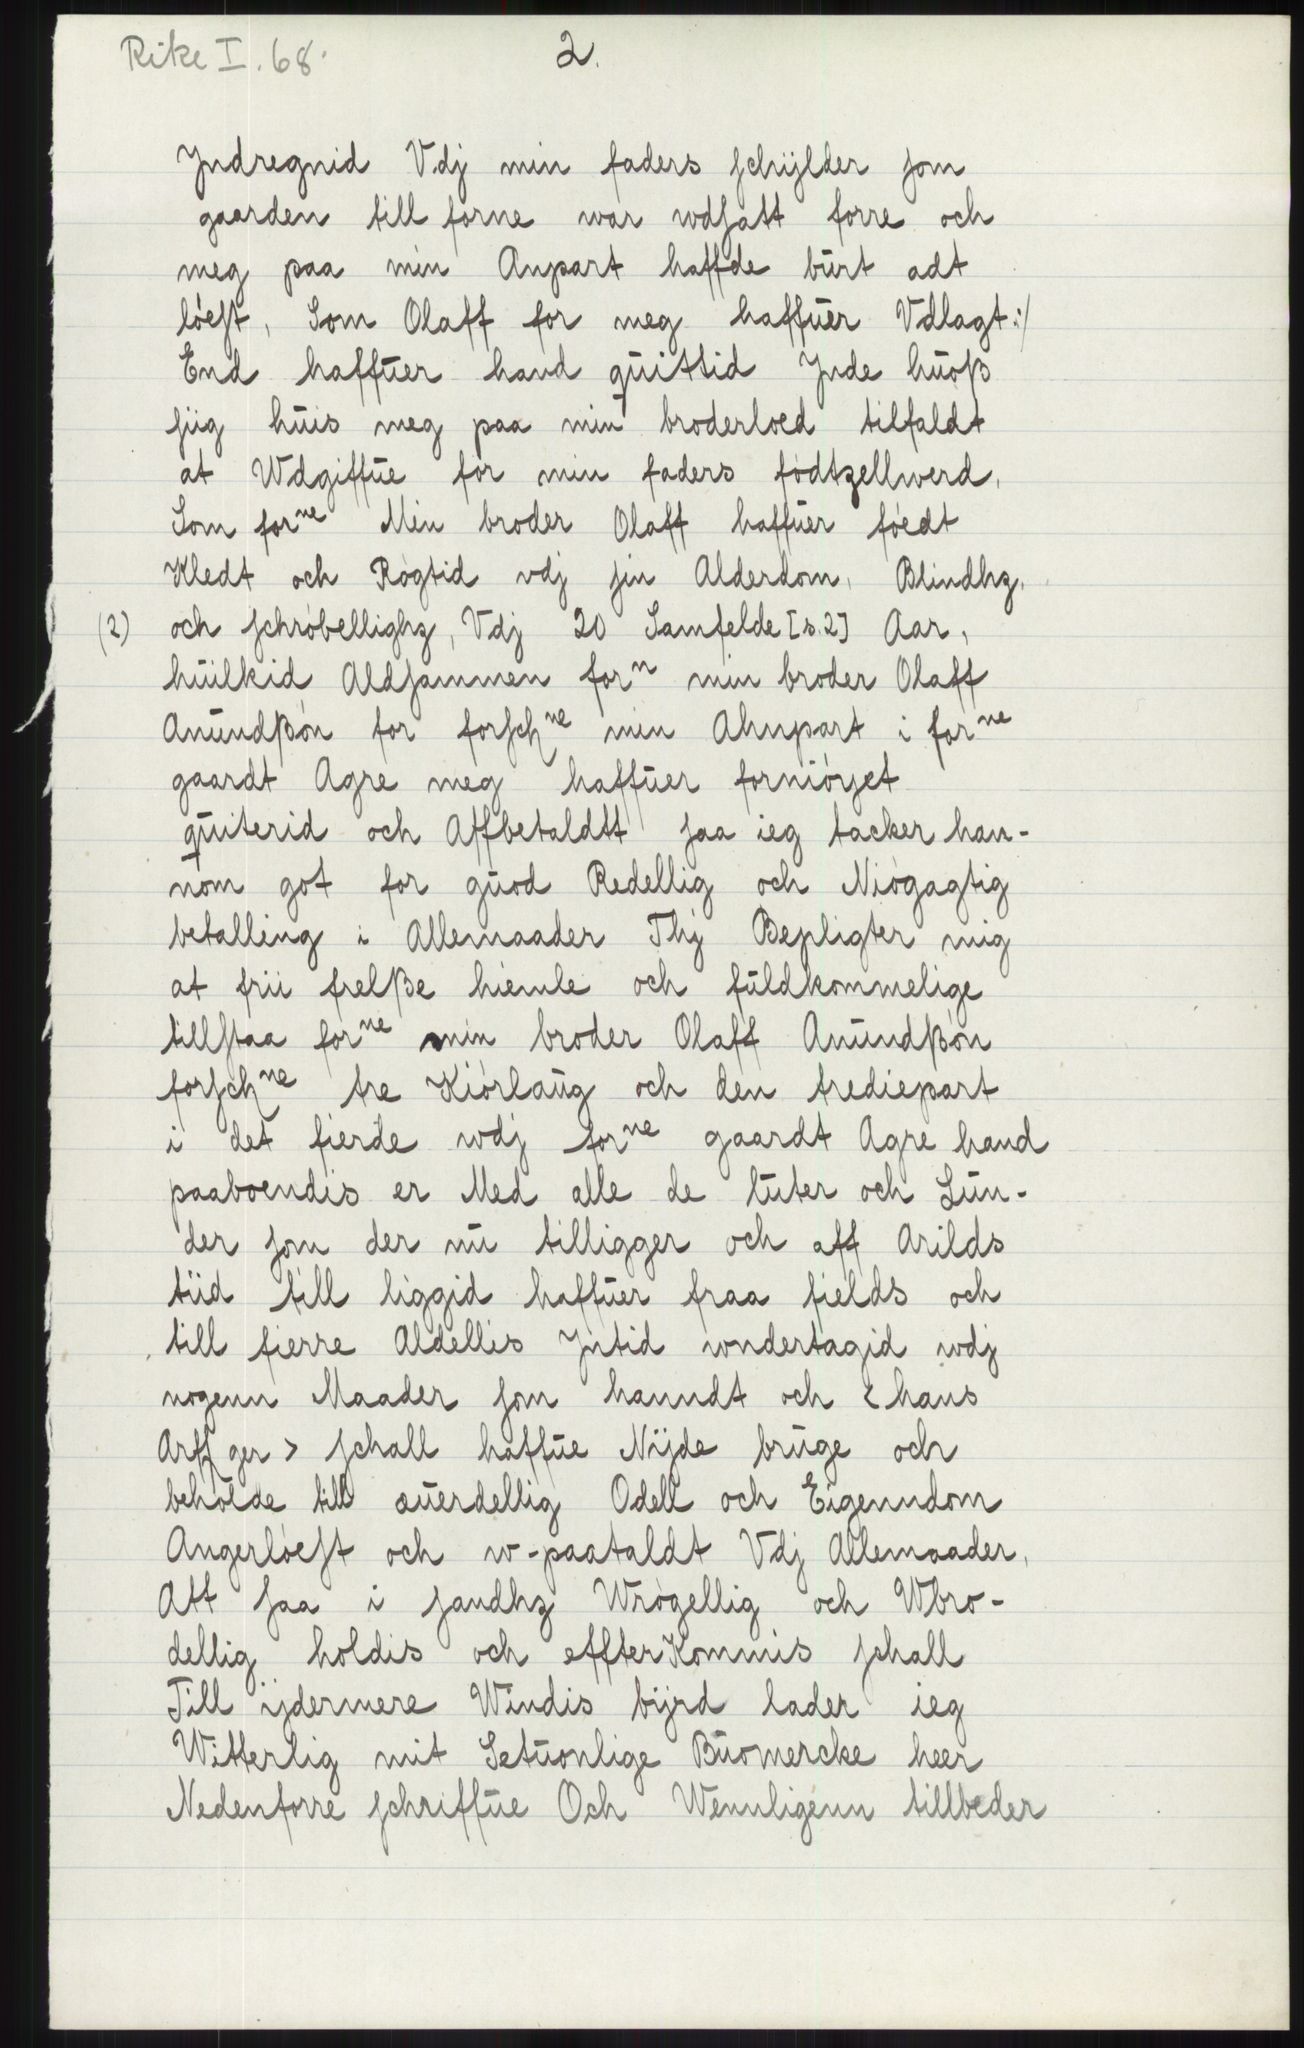 Rike I. 68.
2.
Jndregnid Vdj min faders schijlder som
gaarden till forne war wdsatt forre och
meg paa min Anpart haffde burt adt
løest, Som Olaff for meg haffuer Vdlagt :/
End haffuer hand quittid Jnde huoß
siig huis meg paa min broderloed tilfaldt
at Wdgiffue for min faders fødtzellwerd,
Som forne Min broder Olaff haffuer føedt
Kledt och Røgtid vdj sin Alderdom, Blindhz,
(2) och schrøbellighz, Vdj 20 Samfelde [s. 2] Aar,
huilkid Aldsammen forn min broder Olaff
Anundßøn for forschne min Ahnpart i forne
gaardt Agre meg haffuer forniøyet
quiterid och Affbetaldtt saa ieg tacker han-
nom got for guod Redellig och Niøgagtig
betalling i Allemaader Thj Bepligter mig
at frii frelße hiemle och fuldkommelige
tillstaa forne min broder Olaff Anundßøn
forschne tre Kiørlaug och den trediepart
i det fierde wdj forne gaardt Agre hand
paaboendis er Med alle de luter och Lun-
der som der nu tilligger och aff Arilds
tiid till liggid haffuer fraa fields och
till fierre Aldellis Jntid wndertagid wdj
nogenn Maader som hanndt och < hans
Arffger > schall haffue Nijde bruge och
beholde till æuerdellig Odell och Eigenndom
Angerløest och w-paataldt Vdj Allemaader,
Att saa i sandhz Wrøgellig och Wbrø-
dellig holdis och effterKommis schall
Till ijdermere Windis bijrd lader ieg
Witterlig mit Setuonlige Buomercke heer
Nedenforre schriffue Och Wennligenn tillbeder